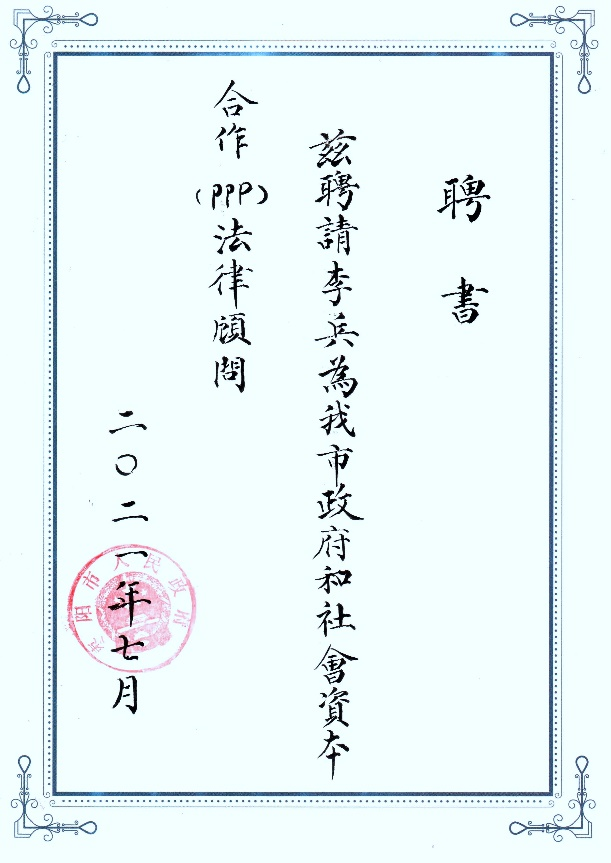 聘書
茲聘請李兵為我市政府和社會資本
合作(PPP)法律顧問
二〇二一年七月
阳市人民政府